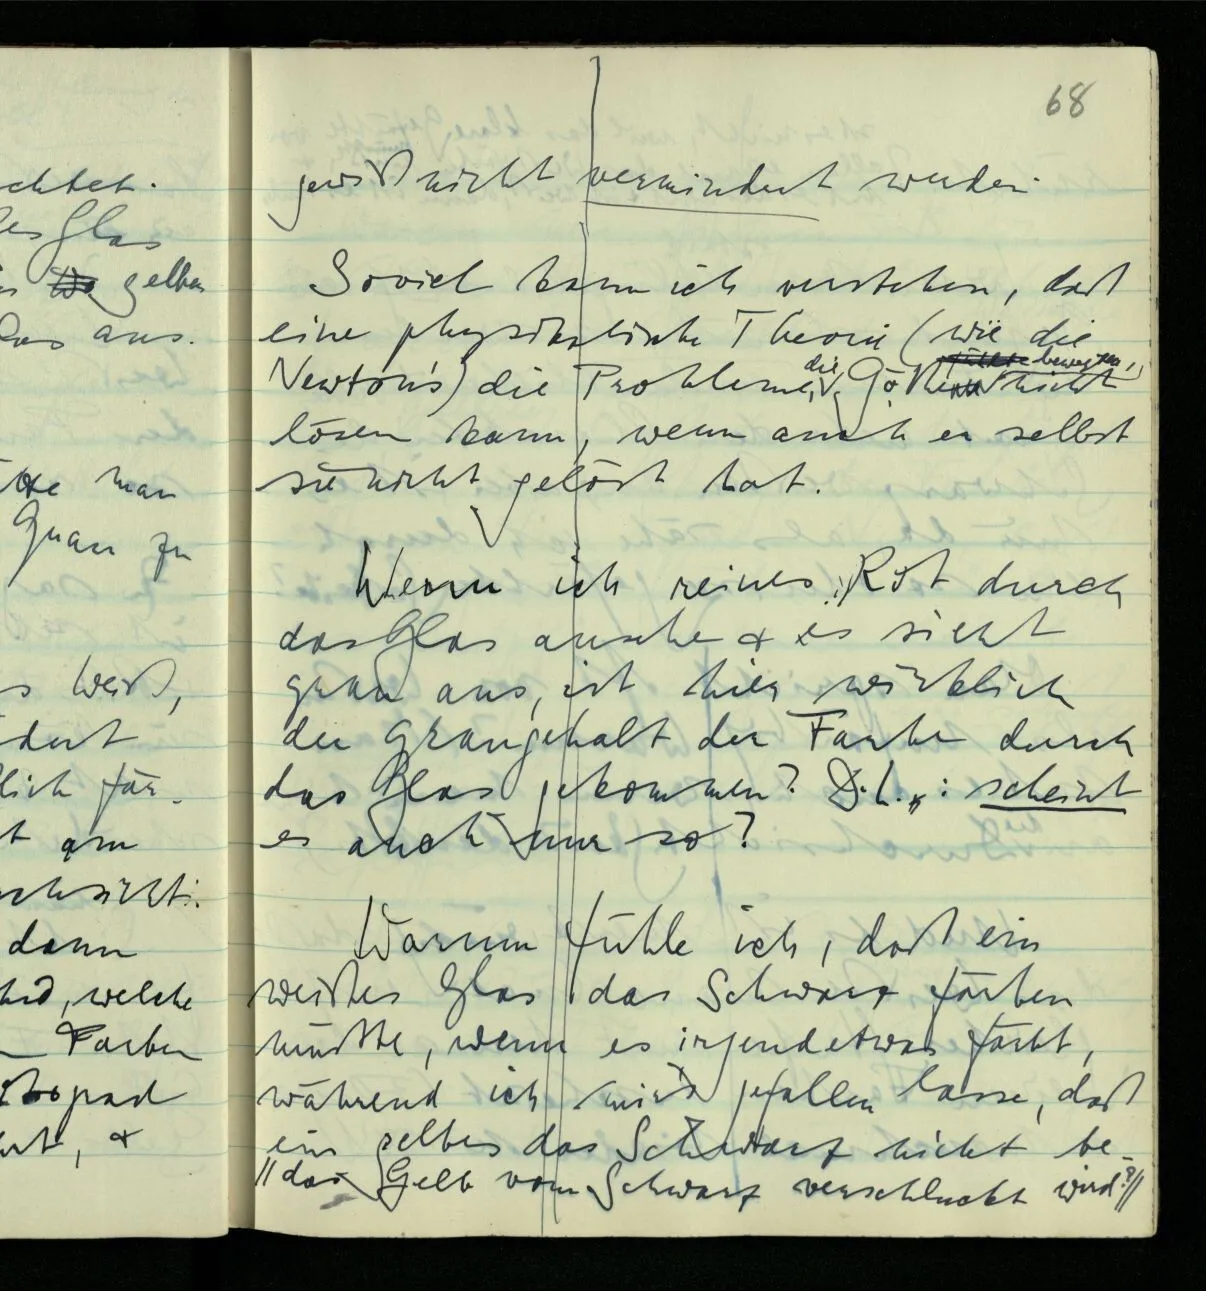 chtet.
es Glas
gelben
as aus.
man
Grau zu
s weiß,
dert
lich fär-
t grau
chsichti-
dann
welche
Farben
grad
rt, &
68
gewiß nicht vermindert werden.
Soviel kann ich verstehen, daß
eine physikalische Theorie (wie die
Newton's) die Probleme, die Göthe bewegten, nicht
lösen kann, wenn auch er selbst
sie nicht gelöst hat.
Wenn ich reines Rot durch
das Glas ansehe & es sieht
grau aus, ist hier wirklich
der Graugehalt der Farbe durch
das Glas gekommen? D.h.: scheint
es auch nur so?
Warum fühle ich, daß ein
weißes Glas das Schwarz färben
müßte, wenn es irgendetwas färbt,
während ich mir's gefallen lasse, daß
ein gelbes das Schwarz nicht be-
//das Gelb vom Schwarz verschluckt wird?//